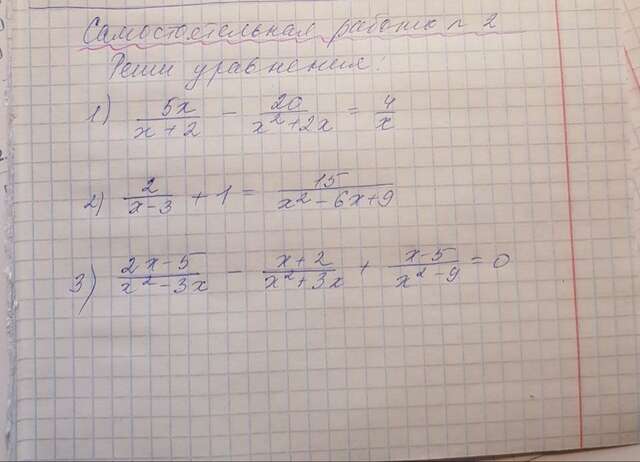 Самостоятельная работа п 2
Реши уравнения:
1) 5x/(x+2) - 20/(x²+2x) = 4/x
2) 2/(x-3) + 1 = 15/(x²-6x+9)
3) (2x-5)/(x²-3x) - (x+2)/(x²+3x) + (x-5)/(x²-9) = 0